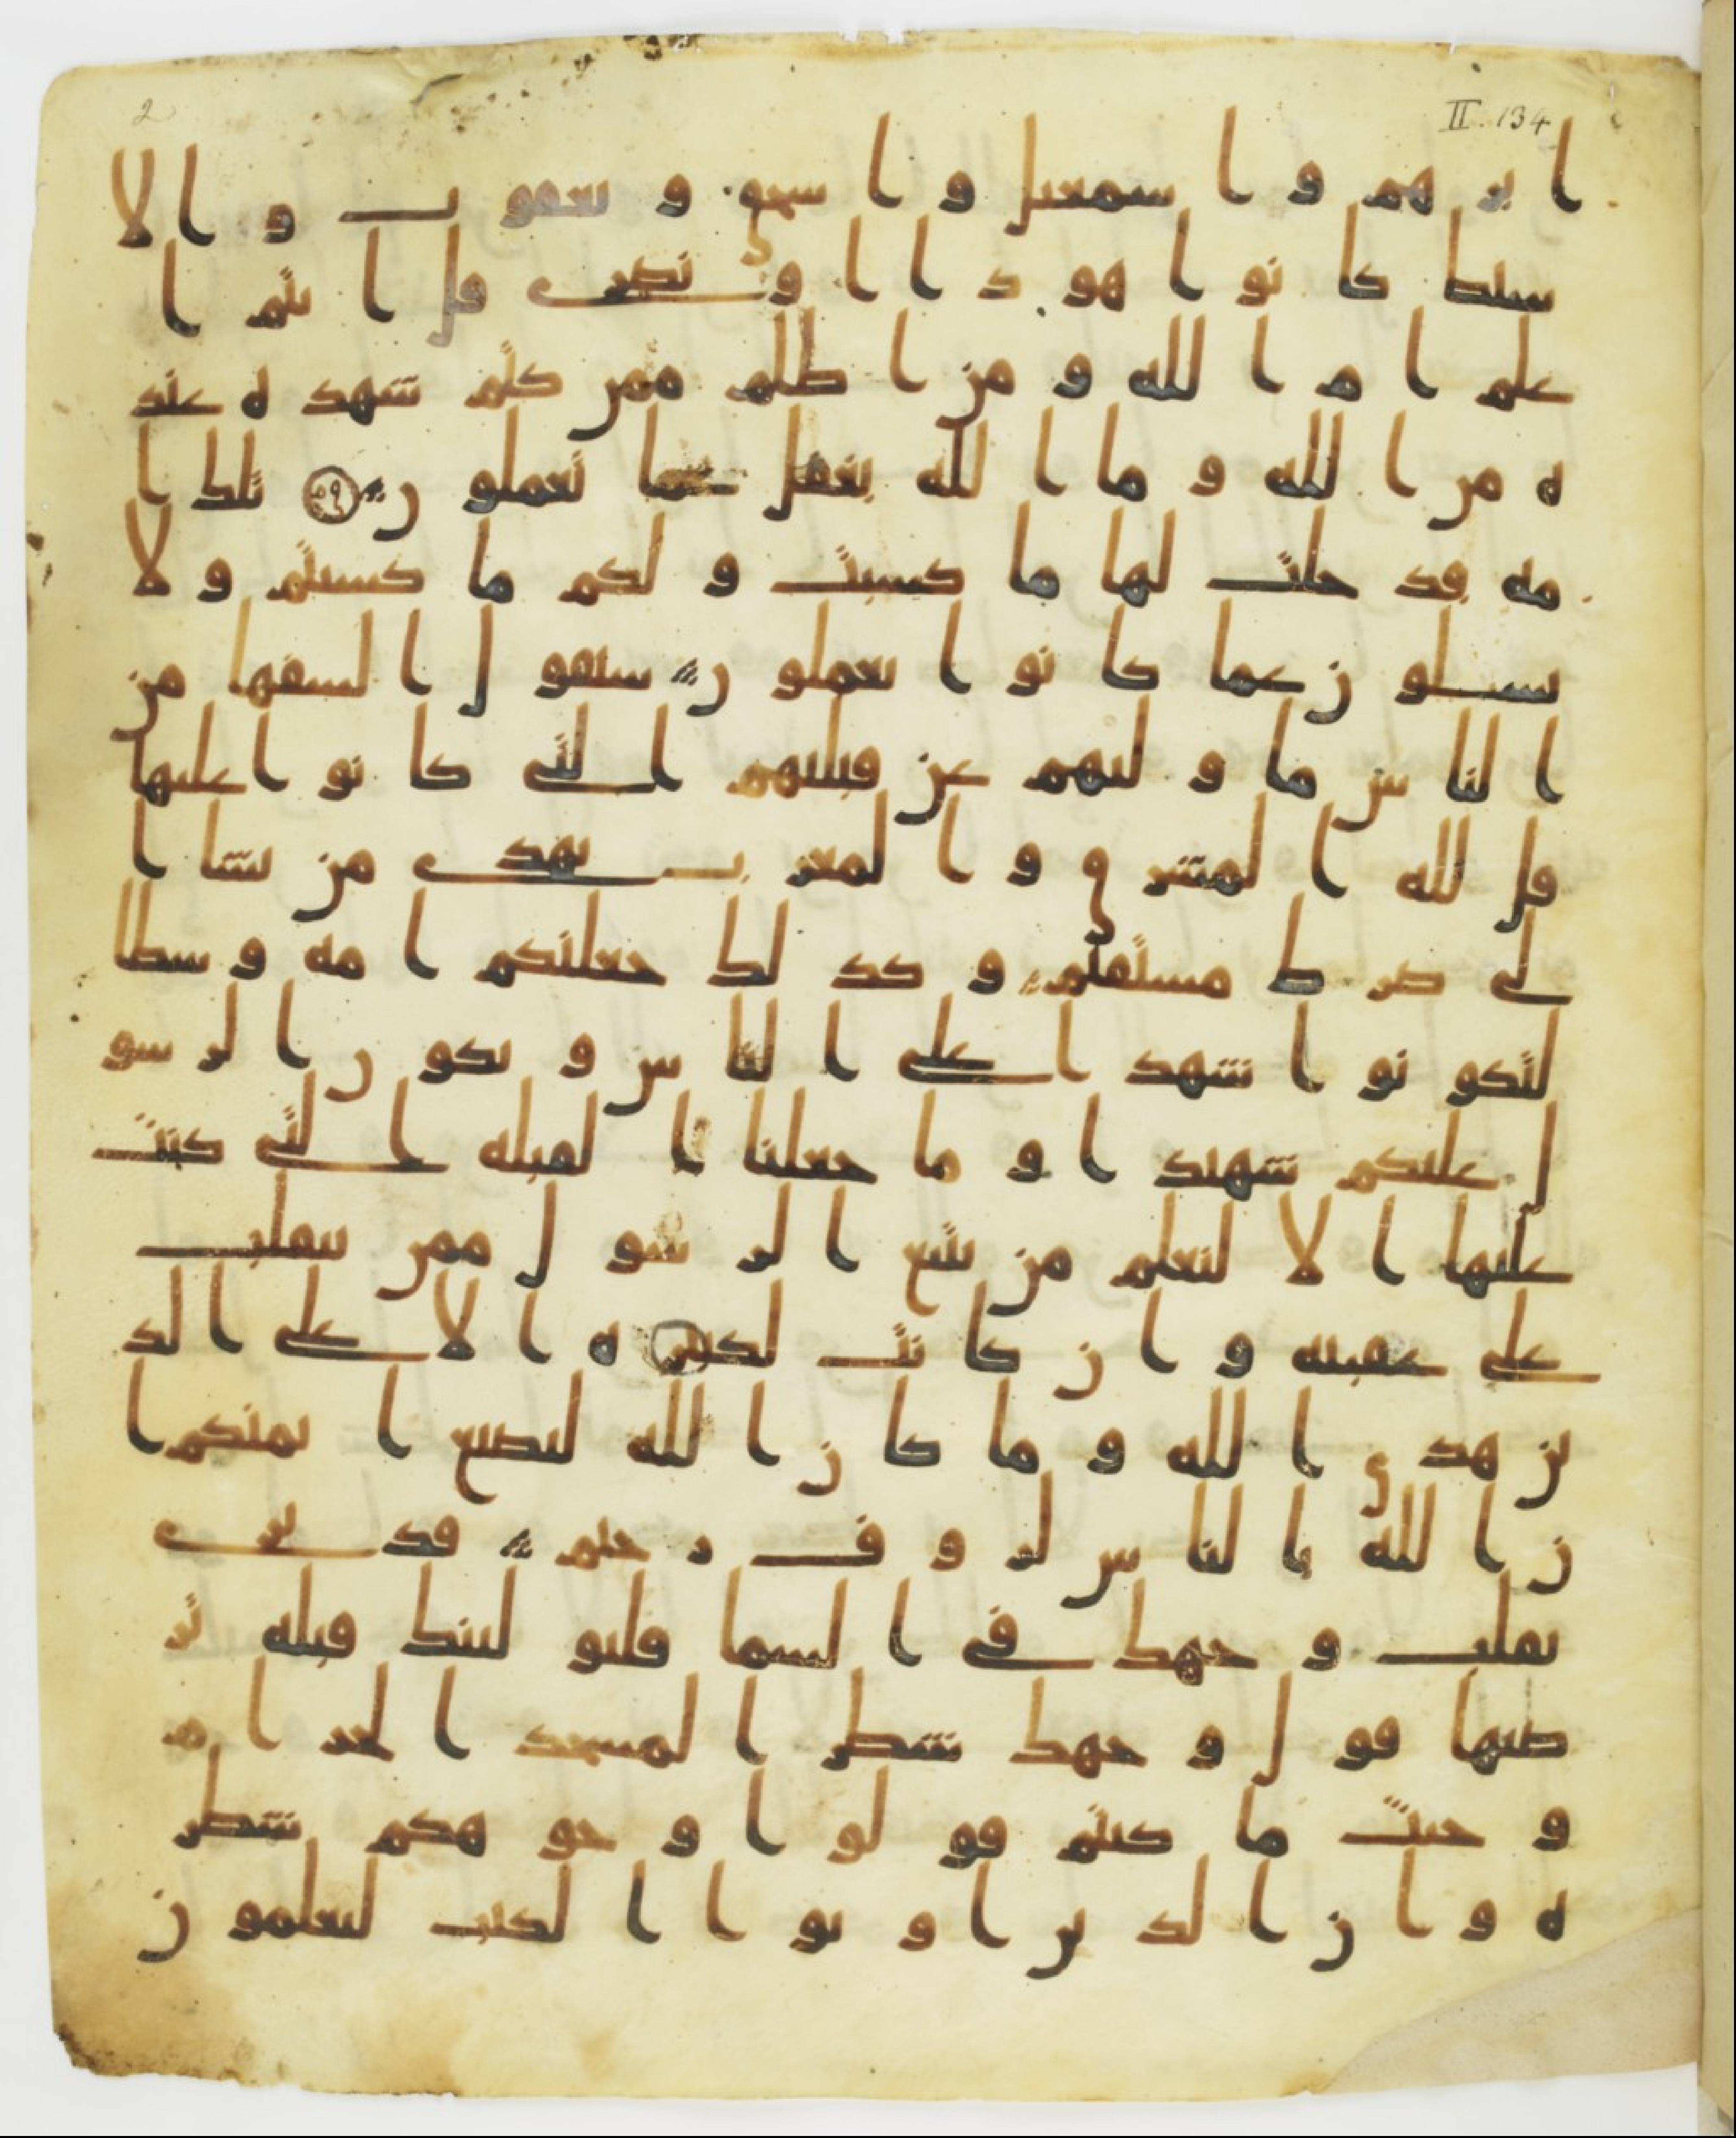 II. 134
2
ابرهم واسمعيل واسحو ويعقوب والا
سبط كانوا هودا او نصرى قل انتم ا
علم ام الله ومن اظلم ممن كتم شهده عند
ه من الله وما الله بغفل عما تعملون تلك ا
مه قد خلت لها ما كسبت ولكم ما كسبتم ولا
تسلون عما كانوا يعملون سيقول السفها من
الناس ما وليهم عن قبلتهم التى كانوا عليها
قل لله المشرق والمغرب يهدى من يشا ا
لى صرط مستقيم وكذلك جعلنكم امه وسطا
لتكونوا شهدا على الناس ويكون الرسو
ل عليكم شهيدا وما جعلنا القبله التى كنت
عليها الا لنعلم من يتبع الرسول ممن ينقلب
على عقبيه وان كانت لكبيره الا على الذ
ين هدى الله وما كان الله ليضيع ايمنكم ا
ن الله بالناس لروف رحيم قد نرى
تقلب وجهك فى السما فلنولينك قبله تر
ضيها فول وجهك شطر المسجد الحرام
وحيث ما كنتم فولوا وجوهكم شطر
ه وان الذين اوتوا الكتب ليعلمون